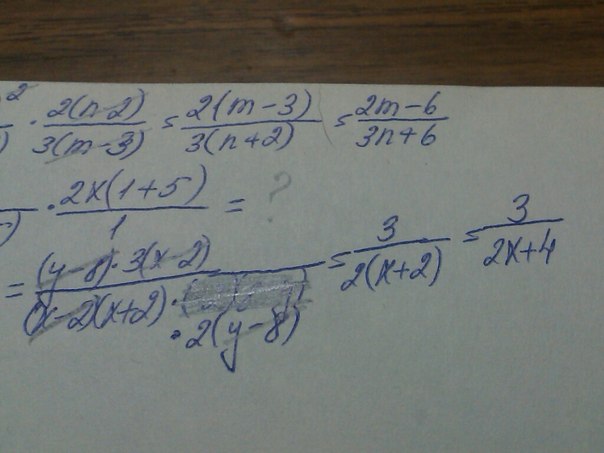 2 · 2(n-2)/3(m-3) = 2(m-3)/3(n+2) = 2m-6/3n+6
· 2x(1+5)/1 = ?
= (y-8)·3(x-2)/(x-2)(x+2)· ·2(y-8) = 3/2(x+2) = 3/2x+4